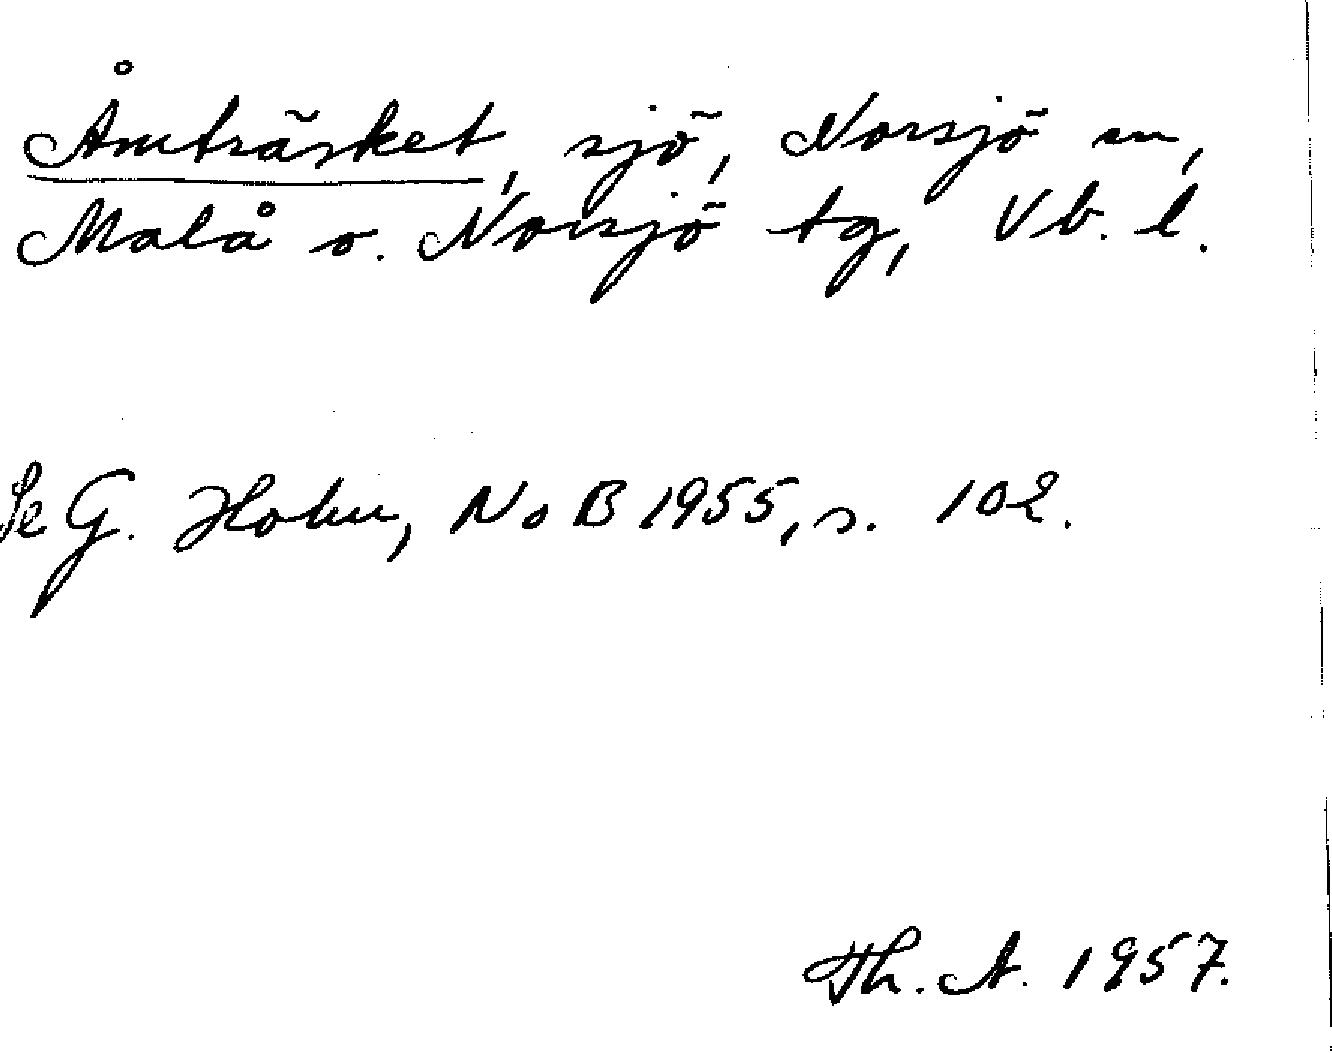 Åmträsket, sjö, Norsjö sn,
Malå o. Norsjö tg, Vb. l.
Se G. Holm, NoB 1955, s. 102.
Th. A. 1957.